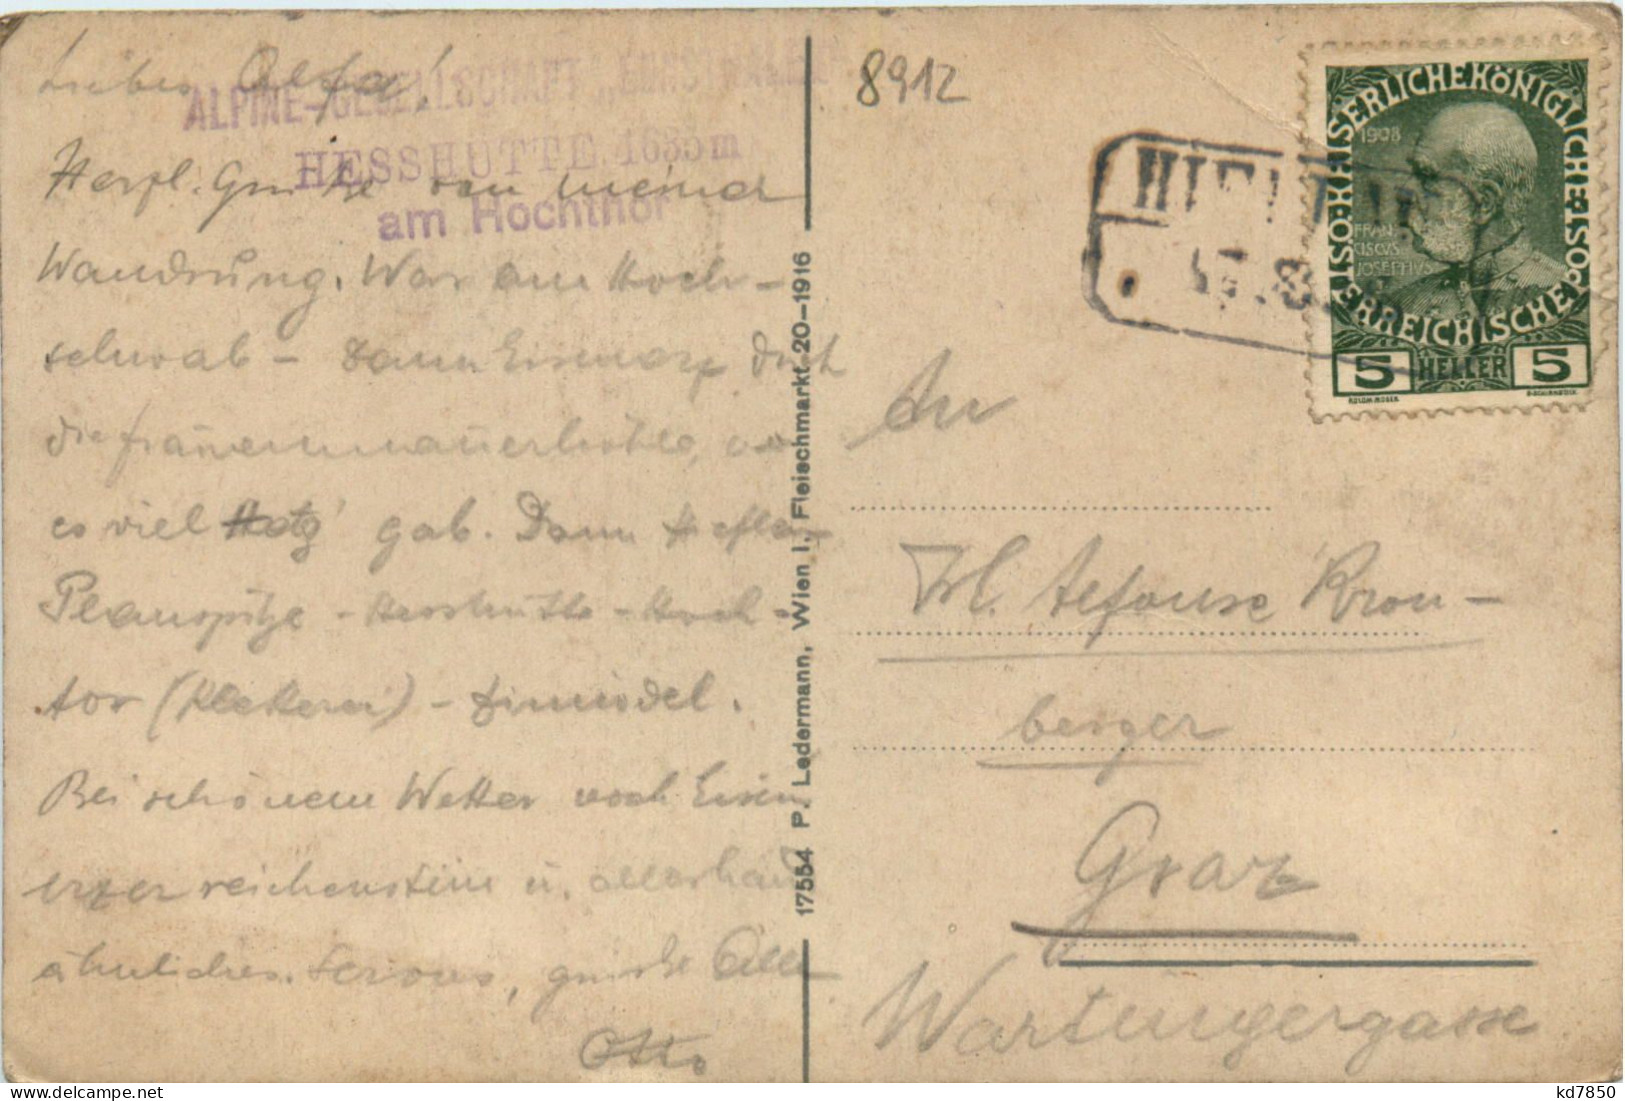 Liebes Alfa!
ALPINE-GESELLSCHAFT „ENNSTHALER"
HESSHÜTTE, 1635 m
am Hochthor
Herzl. Grüße von meiner
Wandrung. War am Hoch-
schwab - dann Eisenerz durch
die Frauenmauerhöhle, wo
es viel gab. Dann
Planspitze - Hesshütte - Hoch-
tor (Kletterei) - Zinnödl.
Bei schönem Wetter noch Eisen-
erzer reichenstein u. allerhand
ähnliches. Servus, grüße Alle
Otto
17554 P. Ledermann, Wien I, Fleischmarkt 20-1916
8912
KAISERLICHE KÖNIGLICHE
ÖSTERREICHISCHE POST
1908
FRAN
CISCVS
JOSEPHVS
5 HELLER 5
An
Frl. Alfonse Kron-
berger
Graz
Wartingergasse
kd7850